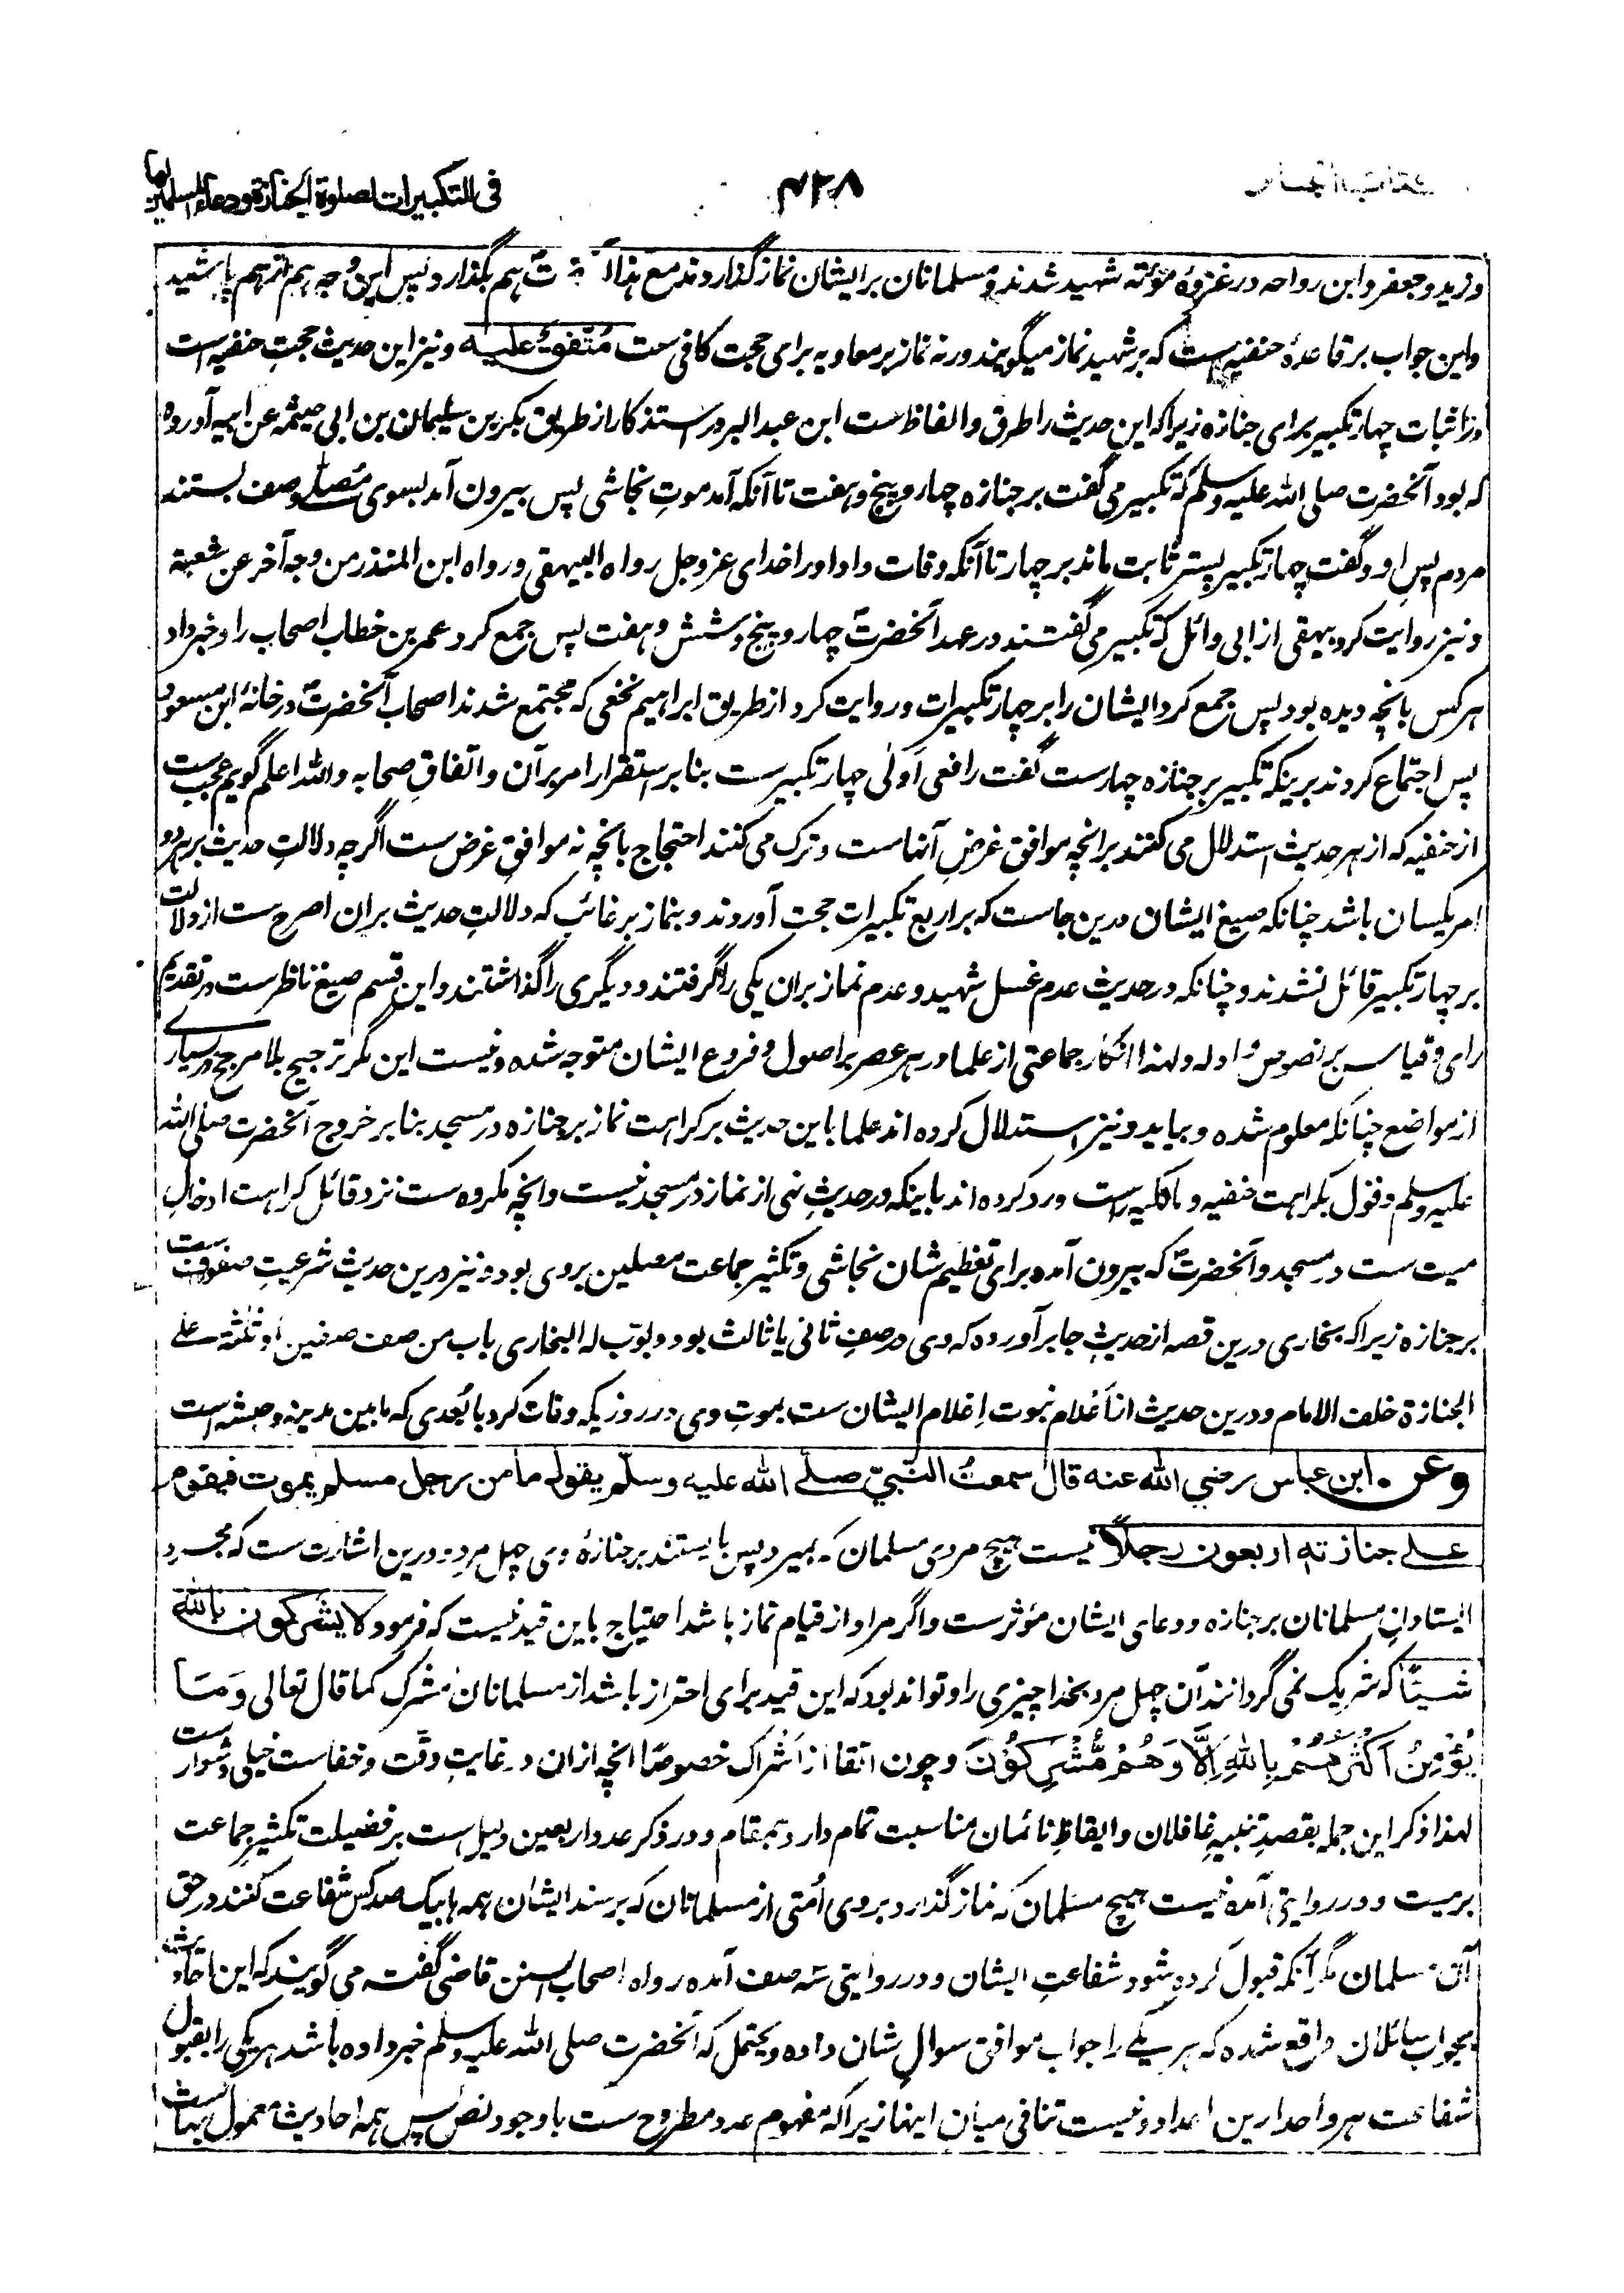 کتاب الجنائز ۴۲۸ فی التکبیرات لصلوة الجنازة ودعاء المسلمین لها
وزید وجعفر وابن رواحه در غزوۀ مؤته شهید شدند ومسلمانان بر ایشان نماز گذاردند مع هذا هم بگذارد پس این وجه هم از هم پاشید
واین جواب بر قاعدۀ حنفیه ست که بر شهید نماز میگویند ورنه نماز بر معاویه برای حجت کافی ست متفق علیه ونیز این حدیث حجت حنفیه است
در اثبات چهار تکبیر برای جنازه زیرا که این حدیث را طرق والفاظ ست ابن عبد البر در استذکار از طریق بکر بن سلیمان بن ابی حیثمه عن ابیه آورده
که بود آنحضرت صلی الله علیه وسلم که تکبیر می گفت بر جنازه چهار وپنج وهفت تا آنکه آمد موتِ نجاشی پس بیرون آمد بسوی مصلے وصف بستند
مردم پس او وگفت چهار تکبیر پستر ثابت ماند بر چهار تا آنکه وفات داد او را خدای عز وجل رواه البیهقی ورواه ابن المنذر من وجه آخر عن شعبة
ونیز روایت کرد بیهقی از ابی وائل که تکبیر می گفتند در عهد آنحضرتؐ چهار وپنج وشش وهفت پس جمع کرد عمر بن خطاب اصحاب را وخبر داد
هر کس بانچه دیده بود پس جمع کرد ایشان را بر چهار تکبیرات وروایت کرد از طریق ابراهیم نخعی که مجتمع شدند اصحاب آنحضرتؐ در خانۀ ابن مسعود
پس اجتماع کردند برینکه تکبیر بر جنازه چهارست گفت رافعی اَولٰی چهار تکبیرست بنا بر استقرار امر بر آن واتفاقِ صحابه والله اعلم گویم عجب ست
از حنفیه که از هر حدیث استدلال می کنند بر آنچه موافق غرضِ آنهاست وترک می کنند احتجاج بانچه نه موافق غرض ست اگرچه دلالتِ حدیث بر هر دو
امر یکسان باشد چنانکه صیغ ایشان درین جاست که بر اربع تکبیرات حجت آوردند وبنماز بر غائب که دلالتِ حدیث بران اصرح ست از دلالت
بر چهار تکبیر قائل نشدند وچنانکه در حدیث عدم غسل شهید وعدم نماز بران یکی را گرفتند ودیگری را گذاشتند واین قسم صیغ ناظرست در تقدیم
رای وقیاس بر نصوص وادله ولهذا انکار جماعتی از علما در هر عصر بر اصول وفروع ایشان متوجه شده ونیست این مگر ترجیح بلا مرجح در بسیارے
از مواضع چنانکه معلوم شده وبیاید ونیز استدلال کرده اند علما باین حدیث بر کراهت نماز بر جنازه در مسجد بنا بر خروج آنحضرت صلی الله
علیه وسلم وقول بکراهت حنفیه ومالکیه راست ورد کرده اند باینکه در حدیثِ نهی از نماز در مسجد نیست وانچه مکروه ست نزد قائل کراهت ادخالِ
میت ست در مسجد وآنحضرتؐ که بیرون آمده برای تعظیم شان نجاشی وتکثیر جماعت مصلین بر وی بود ونیز درین حدیث شرعیتِ صفوف ست
بر جنازه زیرا که بخاری درین قصه از حدیث جابر آورده که وی در صفِ ثانی یا ثالث بود وبوّب له البخاری باب من صف صفین او ثلثة علے
الجنازة خلف الامام ودرین حدیث از اَعْلامِ نبوت اِعْلام ایشان ست بموت وی در روزیکه وفات کرد با بُعدی که مابین مدینه وحبشه است
وعن ابن عباس رضی الله عنه قال سمعت النّبیّ صلے الله علیه وسلّم یقول ما من رجل مسلم یموت فیقوم
علے جنازته اربعون رجلاً نیست هیچ مردی مسلمان که بمیرد پس بایستند بر جنازۀ وی چهل مرد ودرین اشارت ست که مجردِ
ایستادنِ مسلمانان بر جنازه ودعای ایشان مؤثرست واگر مراد از قیام نماز باشد احتیاج باین قید نیست که فرمود لا یشرکون بالله
شیئًا که شریک نمی گردانند آن چهل مرد بخدا چیزی را وتواند بود که این قید برای احتراز باشد از مسلمانان مشرک کما قال تعالی وَمَا
یُؤْمِنُ اَکْثَرُهُمْ بِاللهِ اِلَّا وَهُمْ مُّشْرِکُوْنَ وچون اتقا از اشراک خصوصا انچه ازان در غایتِ دقت وخفاست خیلی دشوار ست
لهذا ذکر این جمله بقصدِ تنبیهِ غافلان وایقاظِ نائمان مناسبت تمام دارد بمقام ودر ذکر عدد اربعین دلیل ست بر فضیلت تکثیر جماعت
بر میت ودر روایتی آمده نیست هیچ مسلمان که نماز گذارد بر وی اُمتی از مسلمانان که برسند ایشان همه ها بیک صد کس شفاعت کنند در حق
آن مسلمان مگر آنکه قبول کرده شود شفاعتِ ایشان ودر روایتی سه صف آمده رواه اصحاب السنن قاضی گفته می گویند که این احادیث
بجواب سائلان واقع شده که هر یکے را جواب موافق سوالِ شان داده ویحتمل که آنحضرت صلی الله علیه وسلم خبر داده باشد هر یکی را بقبول
شفاعت هر واحد ازین اعداد ونیست تنافی میان اینها زیرا که مفهوم عدد مطروح ست با وجود نص پس همه احادیث معمول بهاست